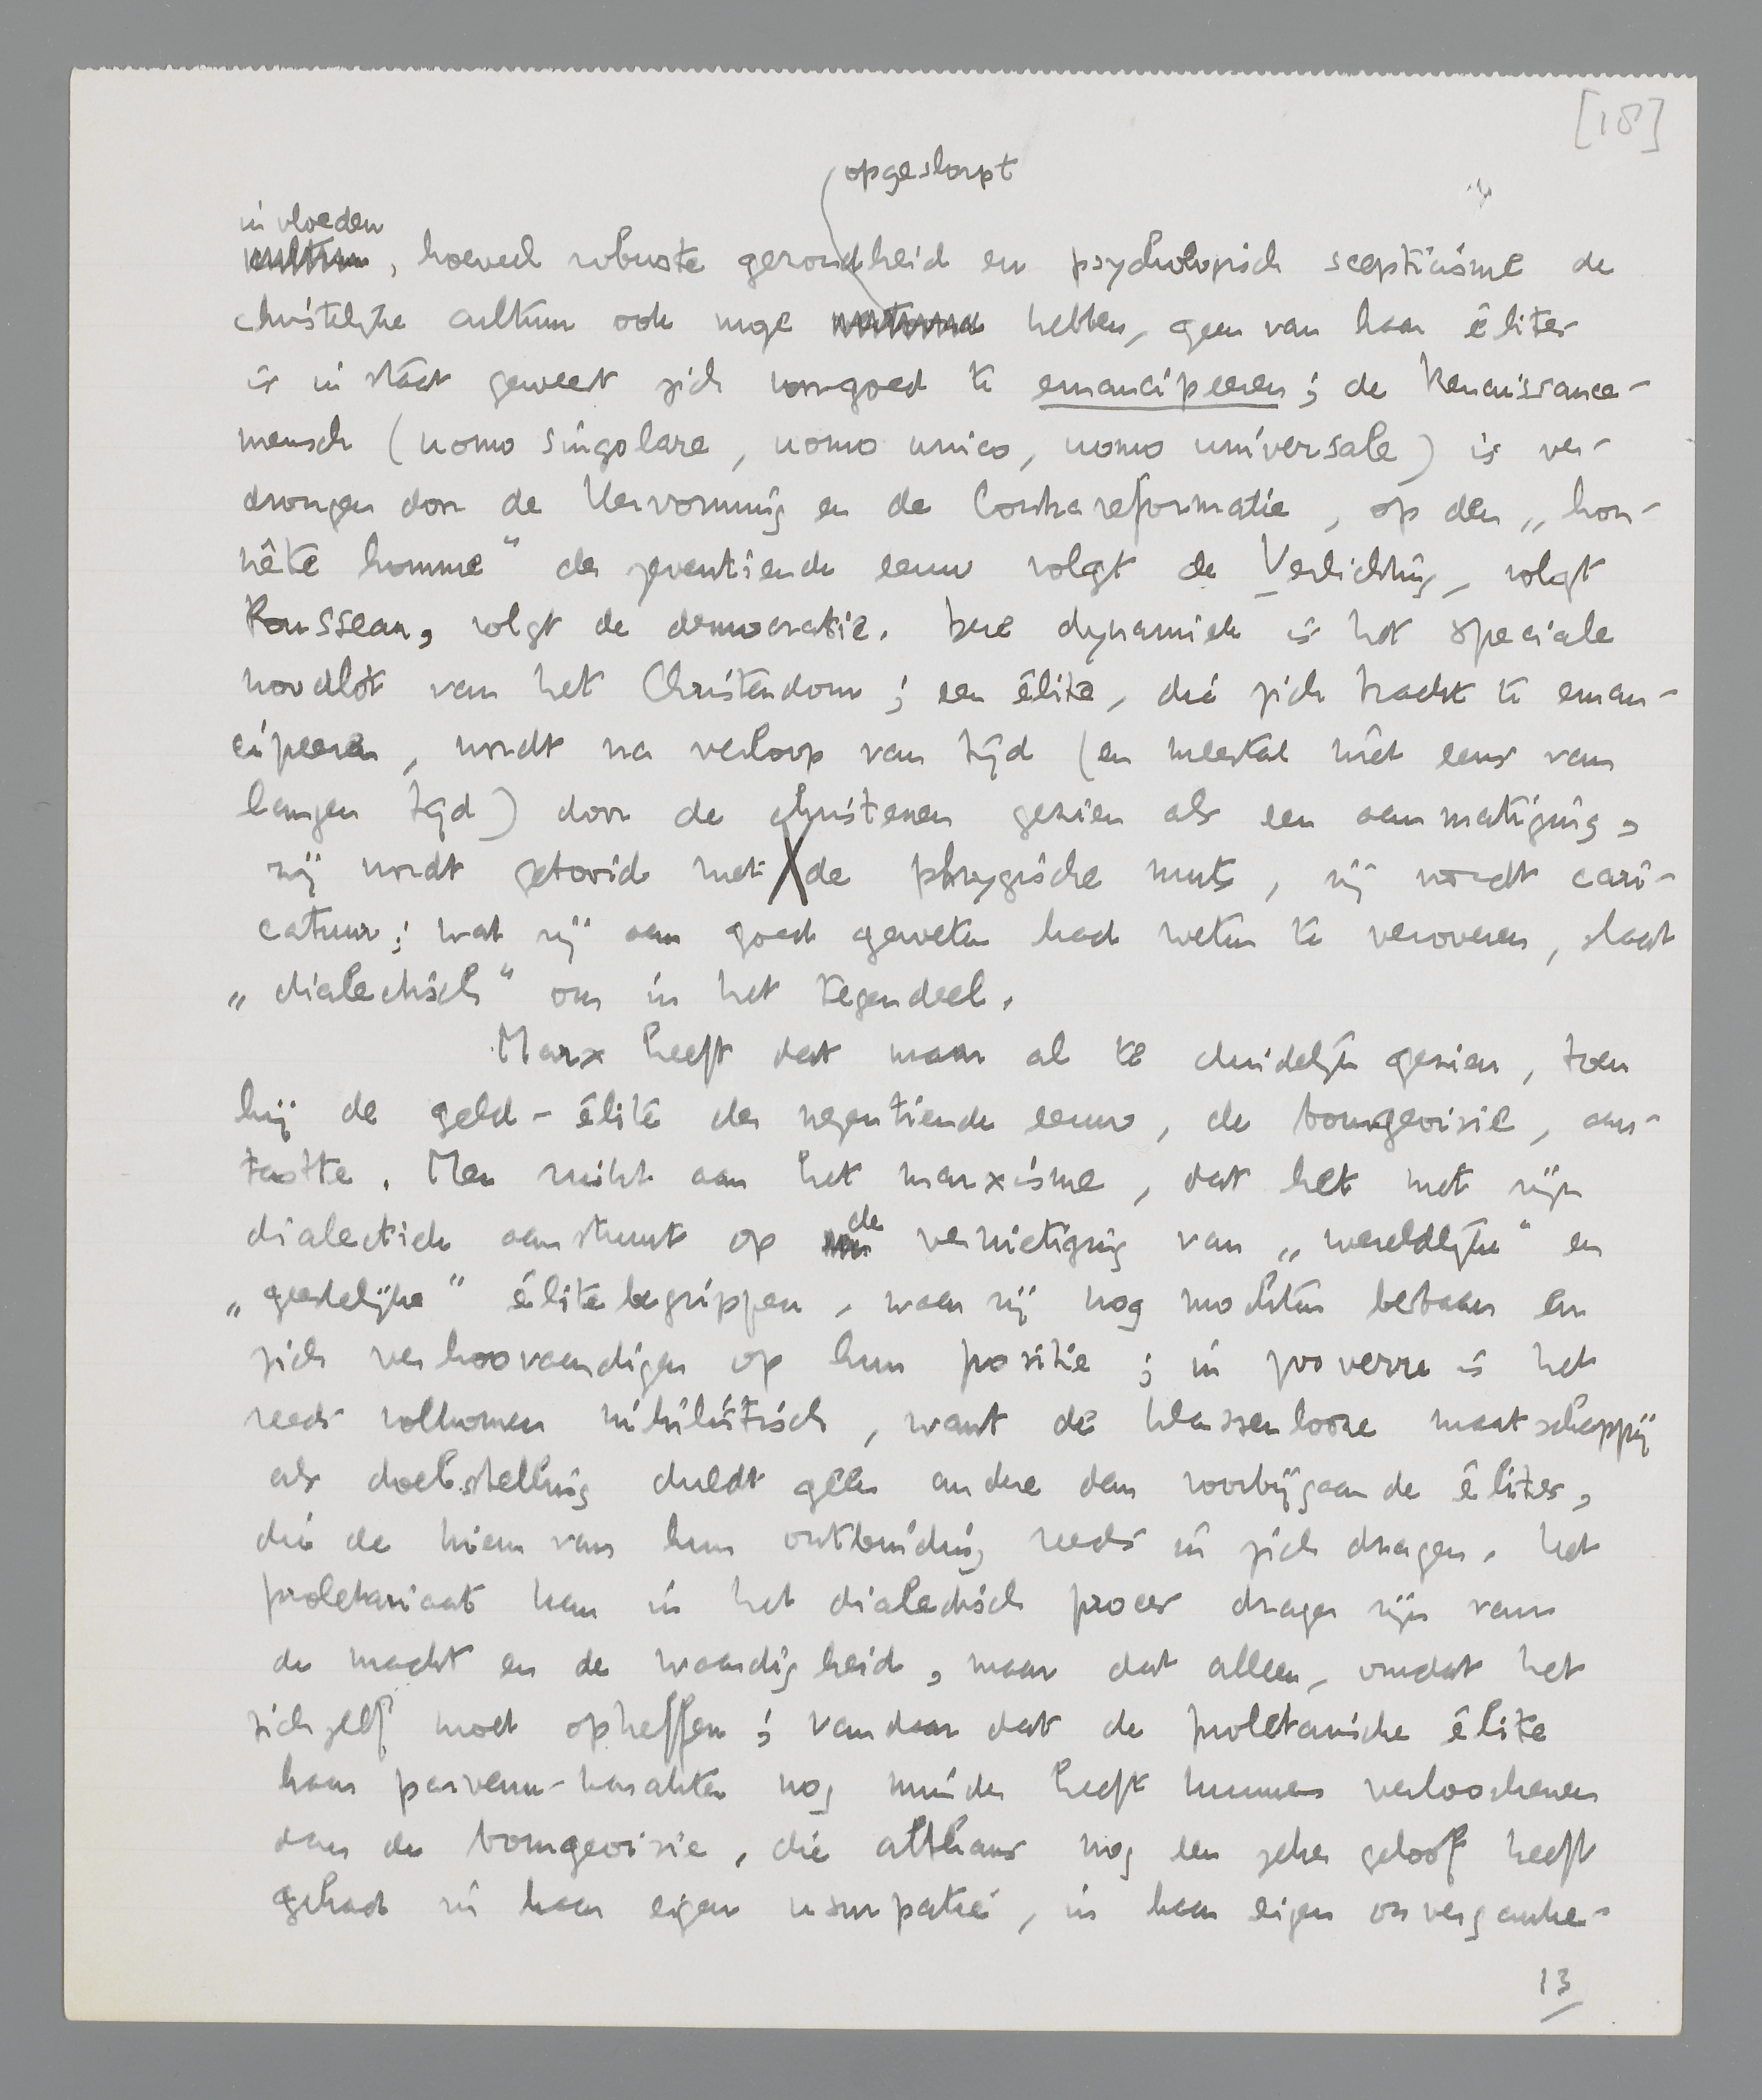 [18]
opgeslorpt
invloeden
, hoeveel robuste gezondheid en psychologisch scepticisme de
christelijke cultuur ook moge hebben, geen van haar élites
is in staat geweest zich voorgoed te emancipeeren; de Renaissance-
mensch (uomo singolare, uomo unico, uomo universale) is ver-
drongen door de Hervorming en de Contrareformatie, op den „hon-
nête homme" der zeventiende eeuw volgt de Verlichting, volgt
Rousseau, volgt de democratie. Deze dynamiek is het speciale
noodlot van het Christendom; een élite, die zich tracht te eman-
cipeeren, wordt na verloop van tijd (en meestal niet eens van
langen tijd) door de christenen gezien als een aanmatiging,
zij wordt getooid met de phrygische muts, zij wordt cari-
catuur; wat zij aan goed geweten had weten te veroveren, slaat
„dialectisch" om in het tegendeel.
Marx heeft dat maar al te duidelijk gezien, toen
hij de geld-élite der negentiende eeuw, de bourgeoisie, aan-
tastte. Men ruikt aan het marxisme, dat het met zijn
dialectiek aanstuurt op de vernietiging van „wereldlijke" en
„geestelijke" élitebegrippen, waar zij nog mochten bestaan en
zich verhoovaardigen op hun positie; in zooverre is het
reeds volkomen nihilistisch, want de klassenlooze maatschappij
als doelstelling duldt geen andere dan voorbijgaande élites,
die de kiem van hun ontbinding reeds in zich dragen. Het
proletariaat kan in het dialectisch proces drager zijn van
de macht en de waardigheid, maar dat alleen, omdat het
zichzelf moet opheffen; vandaar dat de proletarische élite
haar parvenu-karakter nog minder heeft kunnen verloochenen
dan de bourgeoisie, die althans nog een zeker geloof heeft
gehad in haar eigen usurpatie, in haar eigen onverganke-
13